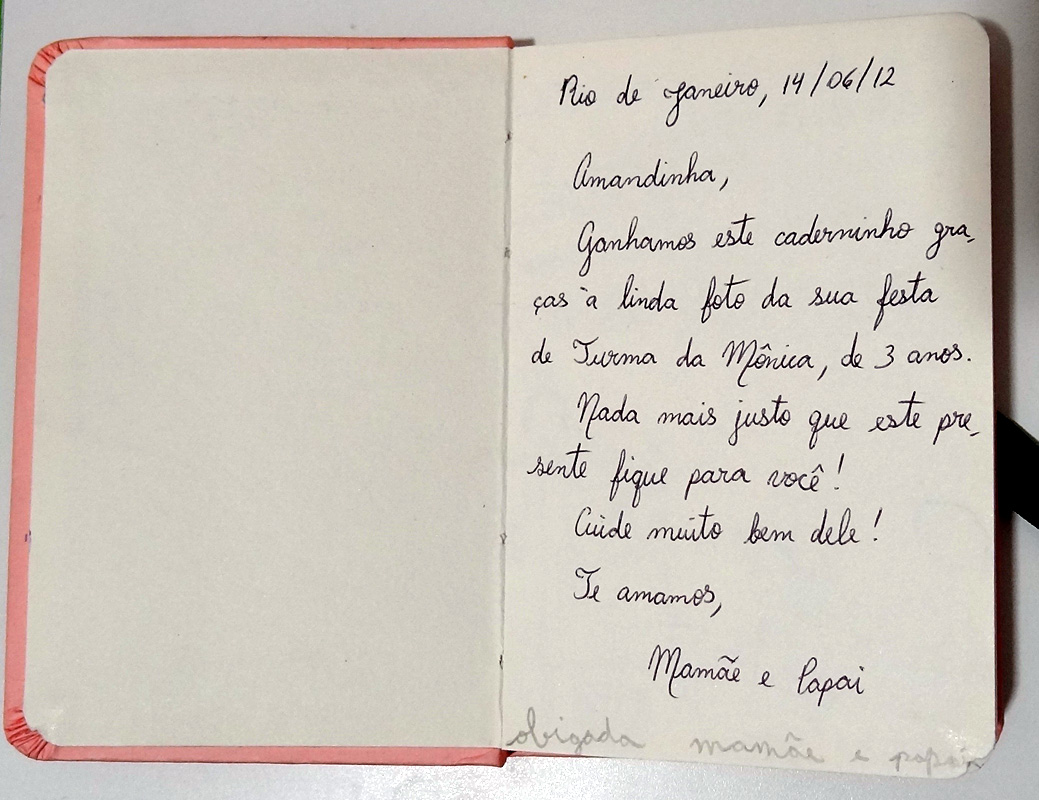 Rio de Janeiro, 14/06/12
Amandinha,
Ganhamos este caderninho gra-
ças à linda foto da sua festa
de Turma da Mônica, de 3 anos.
Nada mais justo que este pre-
sente fique para você!
Cuide muito bem dele!
Te amamos,
Mamãe e Papai
obigada mamãe e papai